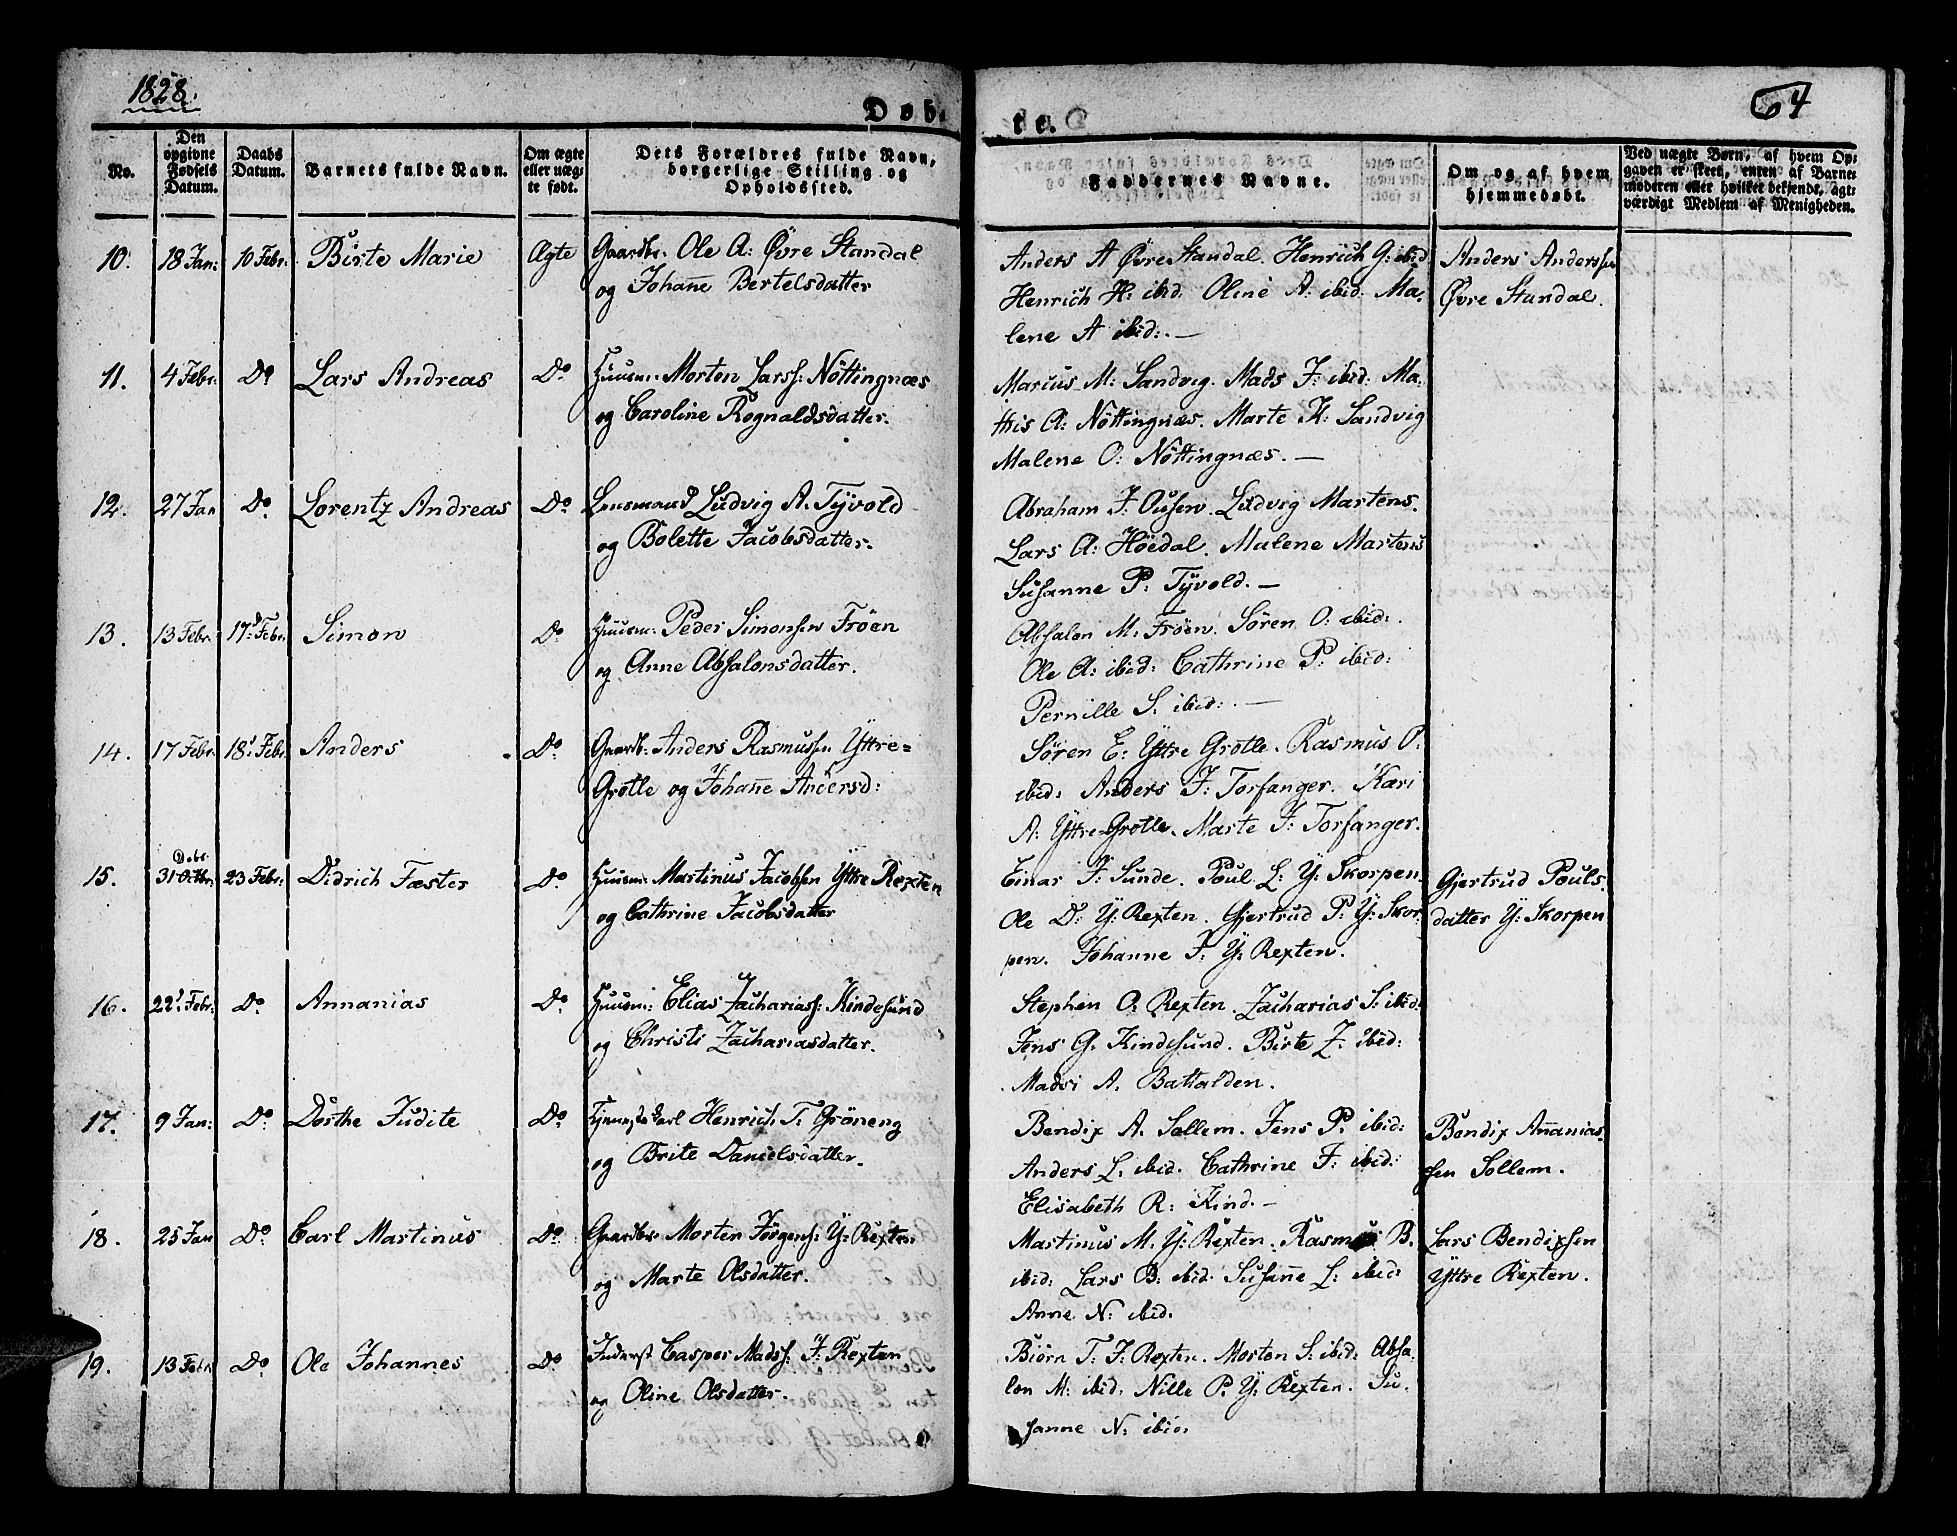 1828.
Døb-
te.
64
No.
Den opgivne Fødsels Datum.
Daabs Datum.
Barnets fulde Navn.
Om ægte eller uægte født.
Dets Forældres fulde Navn, borgerlige Stilling og Opholdssted.
Faddernes Navne.
Om og af hvem hjemmedøbt.
Ved uægte Børn, af hvem Opgaven er skeet, enten af Barnemoderen eller hvilket bekjendt, agtværdigt Medlem af Menigheden.
10. 18 Jan: 10 Febr. Birte Marie Ægte Gaardbr. Ole A: Øvre Standal
og Johan̄e Bertelsdatter
Anders A Øvre Standal. Henrich G: ibid
Henrich H: ibid. Oline A: ibid: Ma-
lene A ibid:. —
Anders Anderssen
Øvre Standal.
11. 4 Febr. Do Lars Andreas Do Huusm: Morten Larss: Nöttingnæs
og Caroline Rognaldsdatter.
Marcus M: Sandvig. Mads J: ibid: Ma-
this A: Nöttingnæs. Marte K: Sandvig
Malene O: Nöttingnæs. —
12. 27 Jan Do Lorentz Andreas Do Lensmand Ludvig A. Tyvold
og Bolette Jacobsdatter.
Abraham J. Ousen. Ludvig Martens.
Lars A: Höedal. Malene Martens
Susanne P: Tyvold. —
13. 13 Febr. 17d Febr. Simon Do Huusm: Peder Simonsen Fröen
og Anne Absalonsdatter.
Absalon M: Fröen. Sören O: ibid:
Ole A: ibid: Cathrine P: ibid:
Pernille S. ibid:. —
14. 17 Febr. 18d Febr Anders Do Gaardb. Anders Rasmussen Yttre=
Grotle og Johan̄e Andersd:
Sören E: Yttre Grotle. Rasmus O:
ibid: Anders J: Torfanger. Kari
A: Yttre Grotle. Marte J: Torfanger.
15. Debr. 31 Octbr. 23 Febr: Didrich Fæster Do Huusm: Martinus Jacobsen Yttre Rexten
og Cathrine Jacobsdatter
Einar J: Sunde. Poul L: Y: Skorpen.
Ole D: Y: Rexten. Gjertrud P: Y: Skor-
pen. Johanne J: Y: Rexten.
Gjertrud Pouls-
datter Y: Skorpen
16. 22d Febr: Do Annanias Do Huusm: Elias Zachariass: Kindesund
og Christi Zachariasdatter.
Stephen O. Rexten. Zacharias S: ibid:
Jens G. Kindesund. Birte Z: ibid:
Madri A. Battalden.
17. 9 Jan: Do Dorthe Judite Do Tjenestekarl Henrich T. Gröneng
og Brite Danielsdatter.
Bendix A. Sollem. Jens P. ibid:
Anders L. ibid. Cathrine J: ibid:
Elisabeth R: Kind. —
Bendix An̄anias-
sen Sollem.
18. 25 Jan Do Carl Martinus Do Gaardbr. Morten Jörgens: Y: Rexten
og Marte Olsdatter.
Martinus M. Y: Rexten. Rasmus B.
ibid: Lars B: ibid. Susan̄e L: ibid:
Anne N: ibid.
Lars Bendixsen
Yttre Rexten.
19. 13 Febr Do Ole Johannes Do Inderst Casper Madss: I: Rexten
og Oline Olsdatter.
Biörn T. I: Rexten. Morten S: ibid: Absa-
lon M: ibid: Nille P. Y: Rexten. Su-
sanne N: ibid.